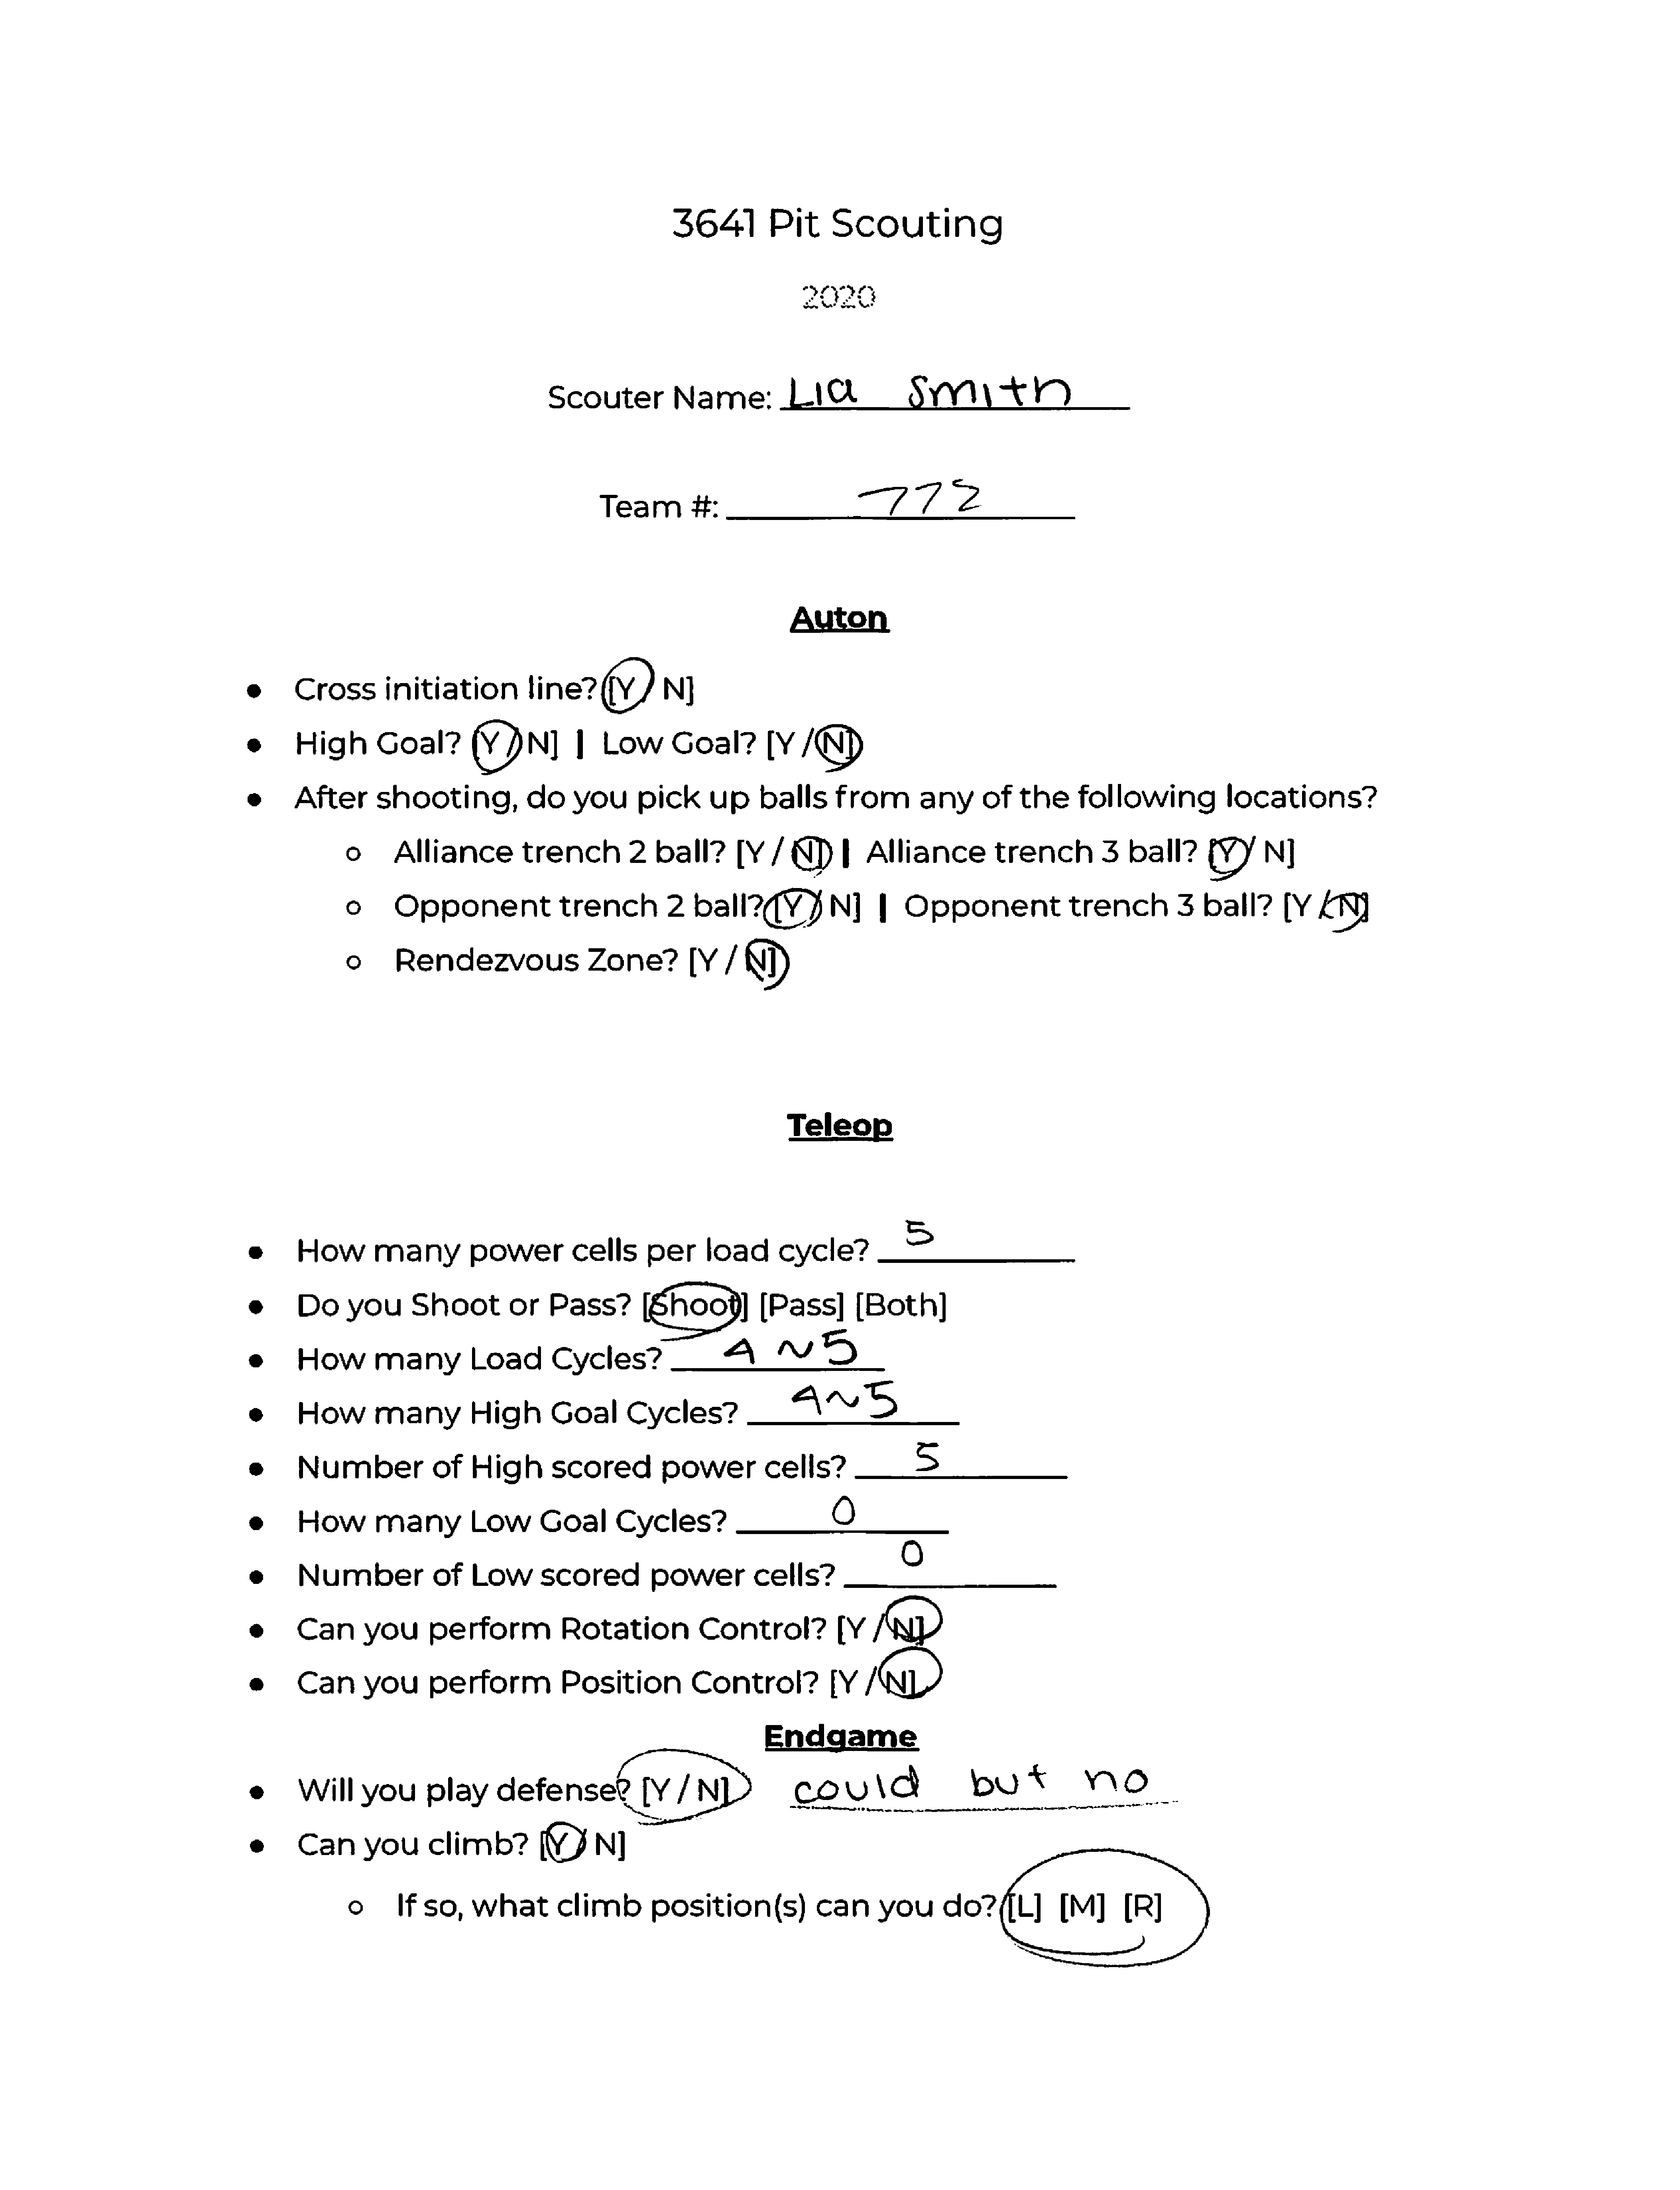 3641 Pit Scouting
2020
Scouter Name: Lia Smith
Team #: 772
Auton
● Cross initiation line? [Y / N]
● High Goal? [Y / N] | Low Goal? [Y / N]
● After shooting, do you pick up balls from any of the following locations?
○ Alliance trench 2 ball? [Y / N] | Alliance trench 3 ball? [Y / N]
○ Opponent trench 2 ball? [Y / N] | Opponent trench 3 ball? [Y / N]
○ Rendezvous Zone? [Y / N]
Teleop
● How many power cells per load cycle? 5
● Do you Shoot or Pass? [Shoot] [Pass] [Both]
● How many Load Cycles? 4 ~ 5
● How many High Goal Cycles? 4~5
● Number of High scored power cells? 5
● How many Low Goal Cycles? 0
● Number of Low scored power cells? 0
● Can you perform Rotation Control? [Y / N]
● Can you perform Position Control? [Y / N]
Endgame
● Will you play defense? [Y / N] could but no
● Can you climb? [Y / N]
○ If so, what climb position(s) can you do? [L] [M] [R]